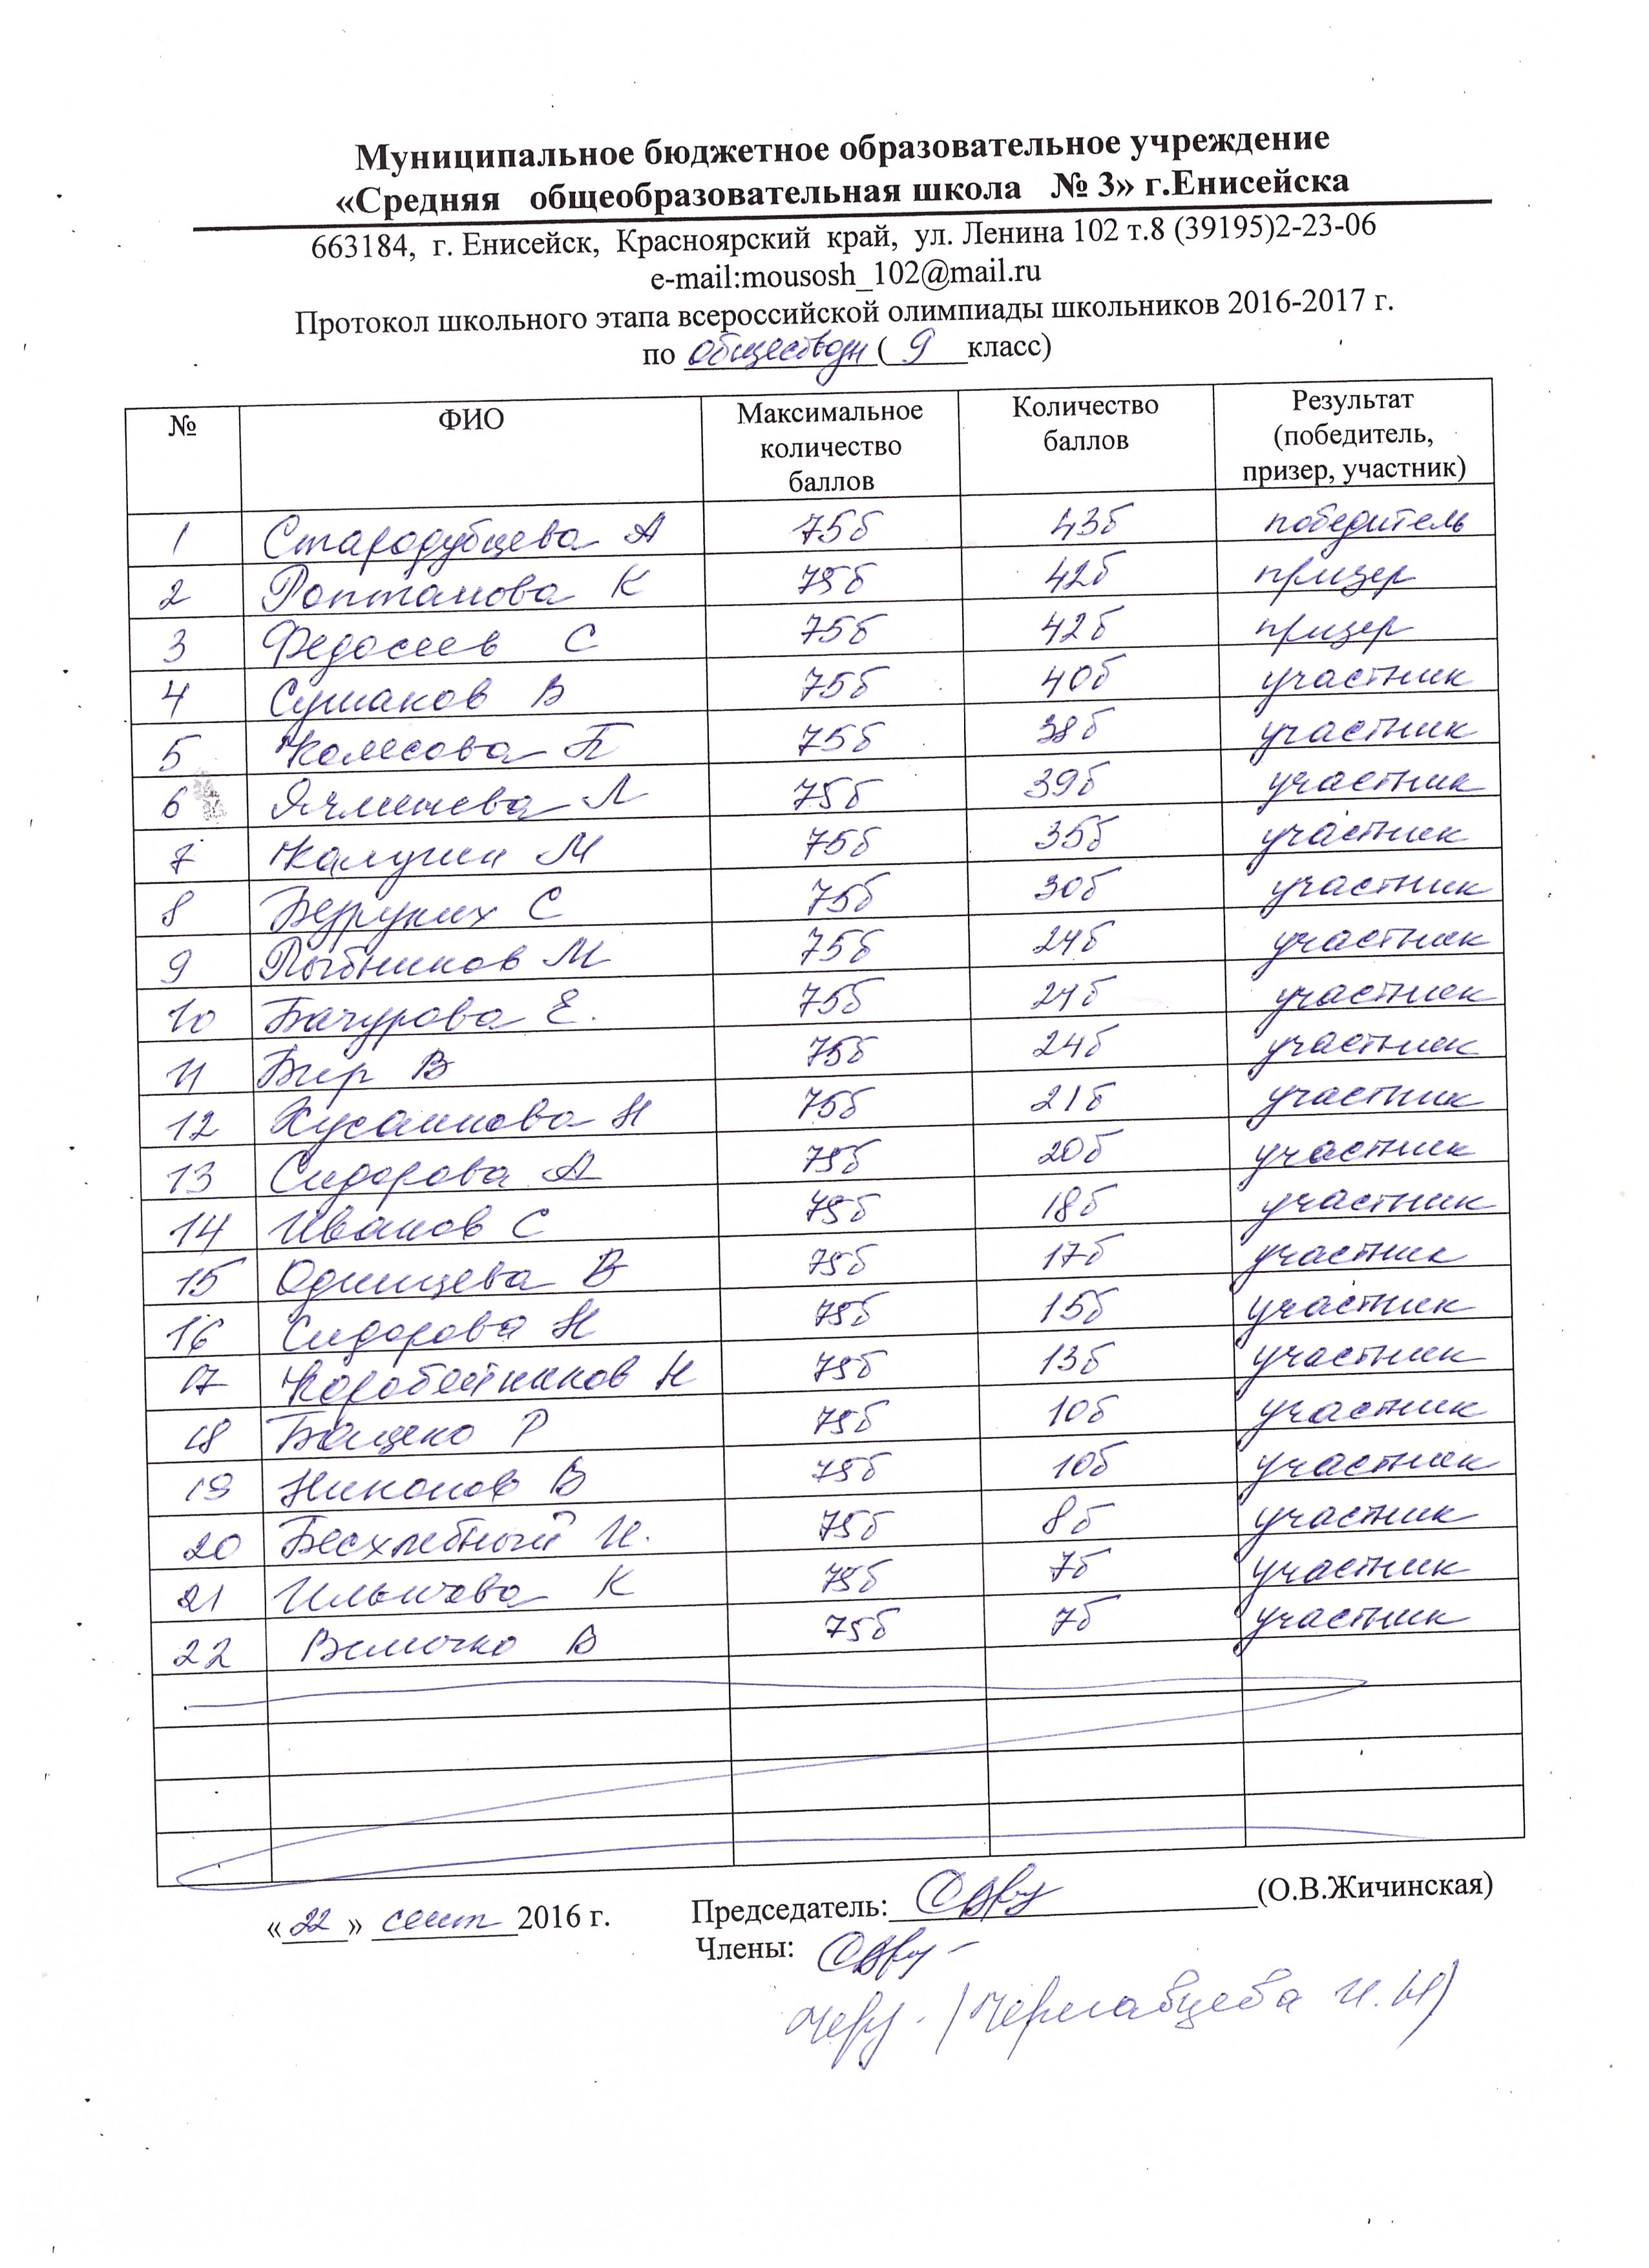 Муниципальное бюджетное образовательное учреждение
«Средняя общеобразовательная школа № 3» г.Енисейска
663184, г. Енисейск, Красноярский край, ул. Ленина 102 т.8 (39195)2-23-06
e-mail:mousosh_102@mail.ru
Протокол школьного этапа всероссийской олимпиады школьников 2016-2017 г.
по обществозн ( 9 класс)
№ ФИО Максимальное количество баллов Количество баллов Результат (победитель, призер, участник)
1 Стародубцева А 75б 43б победитель
2 К 75б 42б призер
3 Федосеев С 75б 42б призер
4 Сушаков В 75б 40б участник
5 Колесова П 75б 38б участник
6 Ячменева Л 75б 39б участник
7 Калугин М 75б 35б участник
8 Безруких С 75б 30б участник
9 Рыбников М 75б 24б участник
10 Бачурова Е. 75б 24б участник
11 Бир В 75б 24б участник
12 Хусаинова Н 75б 21б участник
13 Сидорова А 75б 20б участник
14 Иванов С 75б 18б участник
15 Одинцева В 75б 17б участник
16 Сидорова Н 75б 15б участник
17 Коробейников Н 75б 13б участник
18 Р 75б 10б участник
19 Никонов В 75б 10б участник
20 Бесхлебный И. 75б 8б участник
21 К 75б 7б участник
22 В 75б 7б участник
«22» сент 2016 г. Председатель: (О.В.Жичинская)
Члены:
И.Н)